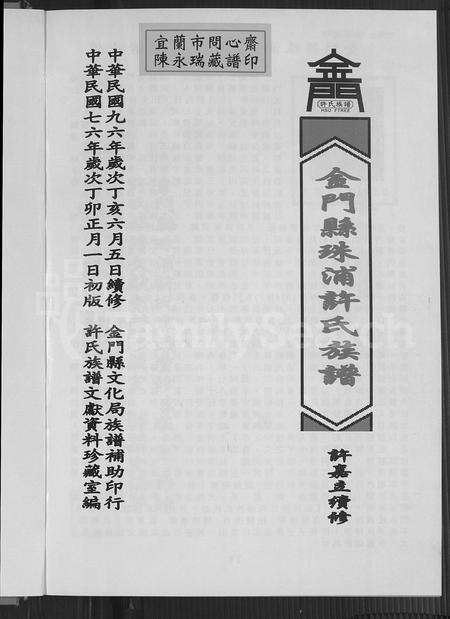 宜蘭市問心齋
陳永瑞藏譜印
金門
許氏族譜
HSU FTREE
金門縣珠浦許氏族譜
許嘉立續修
中華民國九六年歲次丁亥六月五日續修 金門縣文化局族譜補助印行
中華民國七六年歲次丁卯正月一日初版 許氏族譜文獻資料珍藏室編
FamilySearch